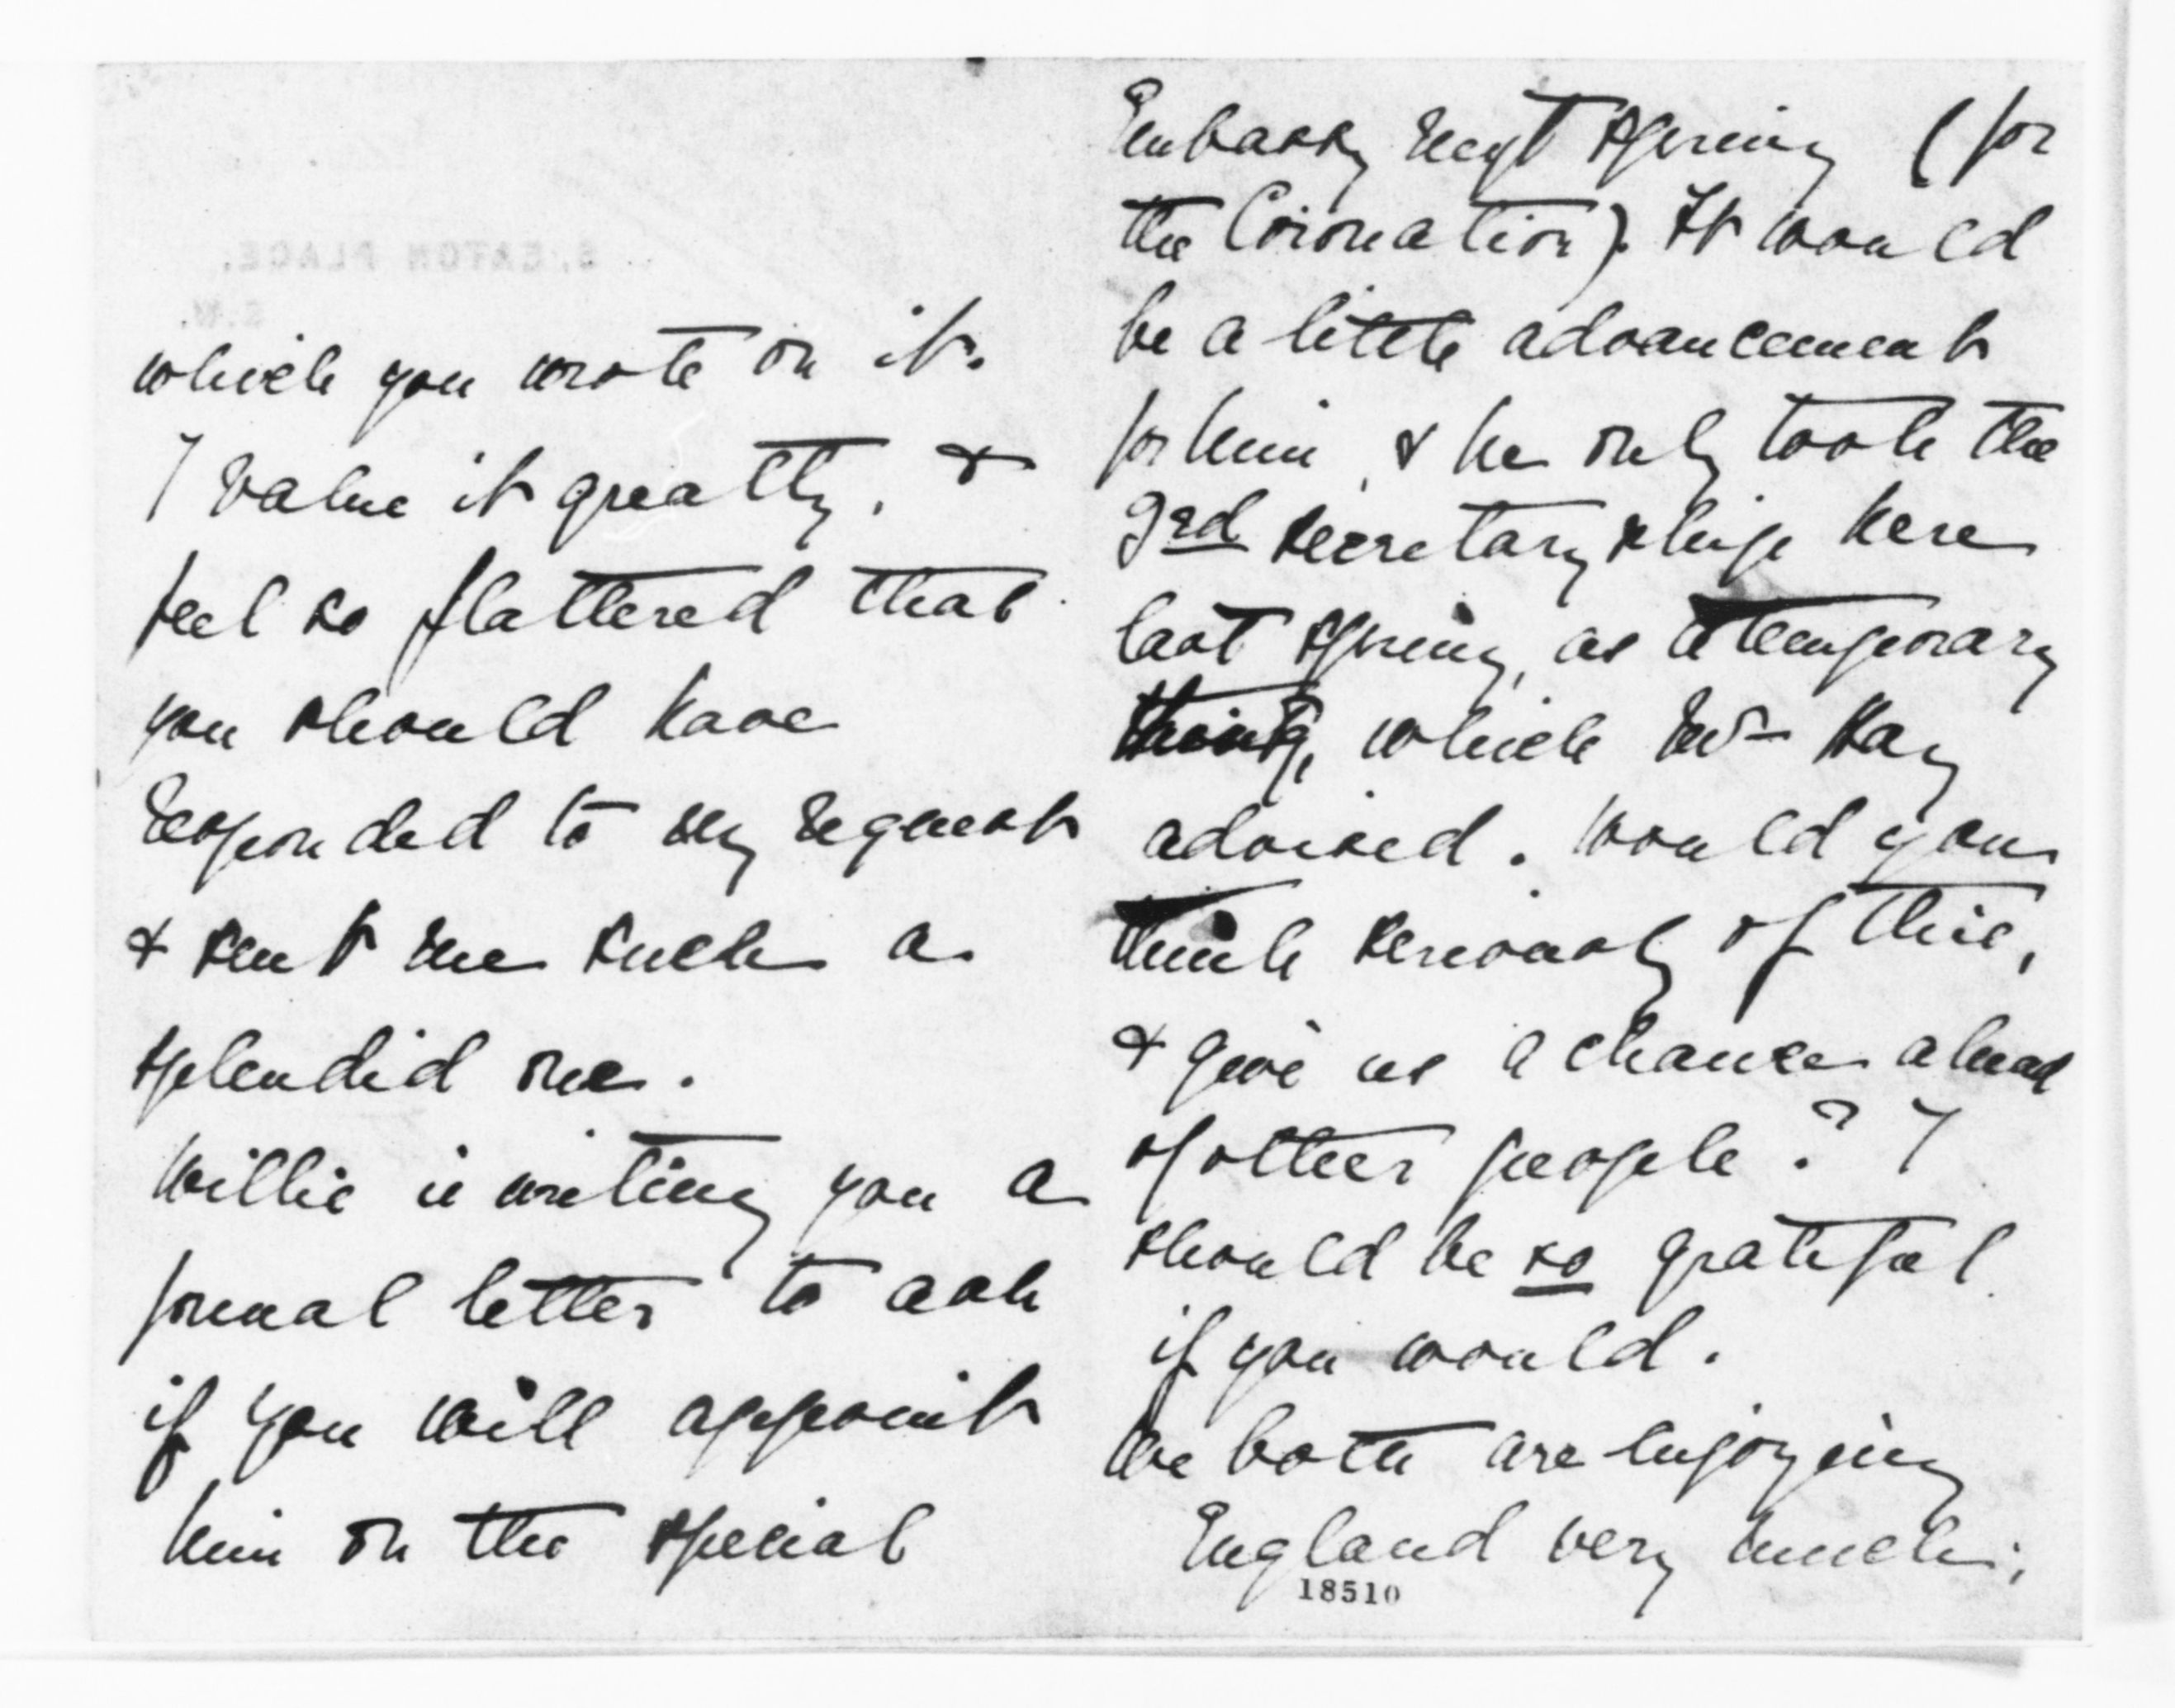 5, EATON PLACE,
S.W.
which you wrote on it.
I value it greatly, &
feel so flattered that
you should have
responded to my request
& sent me such a
splendid one.
Willie is writing you a
formal letter to ask
if you will appoint
him on the special
Embassy next spring (for
the Coronation). It would
be a little advancement
for him, & he only took the
3rd secretaryship here
last spring, as a temporary
thing, which Mr Hay
advised. Would you
think seriously of this,
& give us a chance ahead
of other people? I
should be so grateful
if you would.
We both are enjoying
England very much;
18510